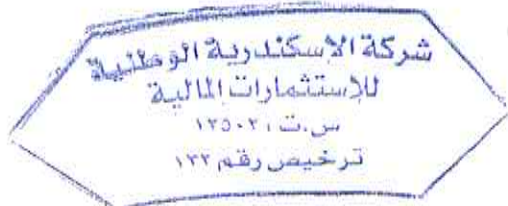 شركة الاسكندرية الوطنية
للاستثمارات المالية
س.ت ١٣٥٠٢٠١
ترخيص رقم ١٣٢